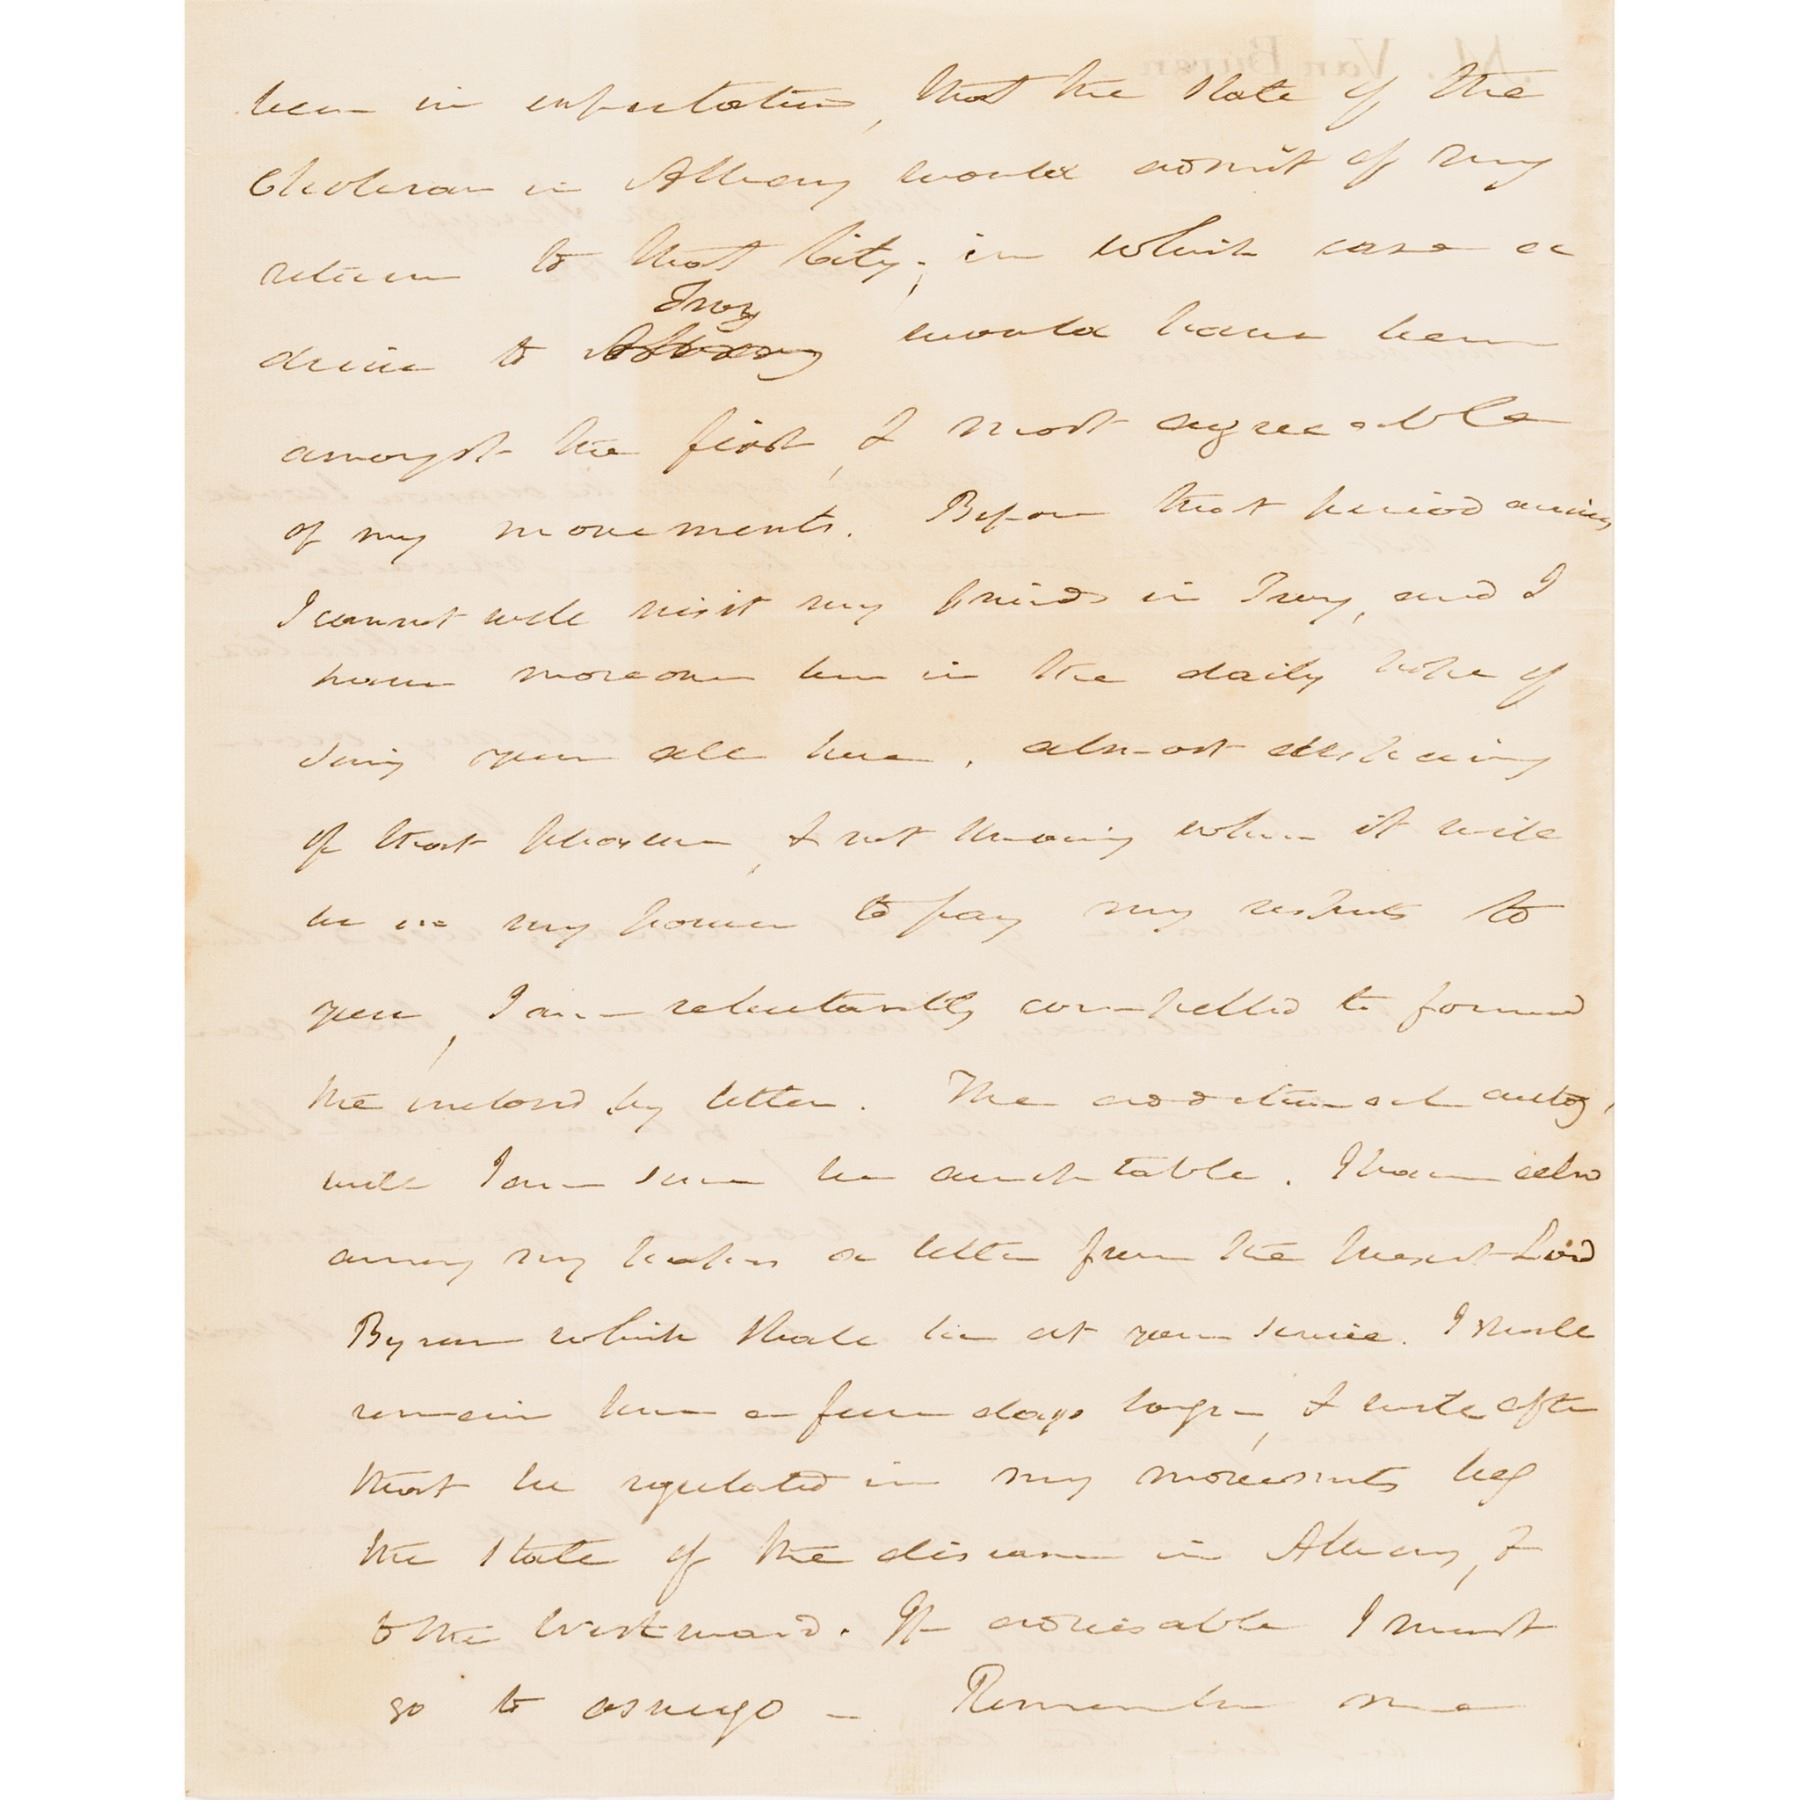 been in expectation, that the State of the
Cholera in Albany would admit of my
return to that City; in which case a
drive to Albany Troy would have been
amongst the first, & most agreeable
of my movements. Before that period arrives
I cannot well visit my friends in Troy, and I
have moreover been in the daily hope of
seeing you all here. almost despairing
of that pleasure, & not knowing when it will
be in my power to pay my respects to
you, I am reluctantly compelled to forward
the inclosed by letter. The additional autog,
will I am sure be acceptable. I have also
among my papers a letter from the present Lord
Byron which shall be at your service. I shall
remain here a few days longer, & will after
that be regulated in my movements by
the State of the disease in Albany, &
to the Westward. If advisable I must
go to oswego — Remember me
M. Van Buren